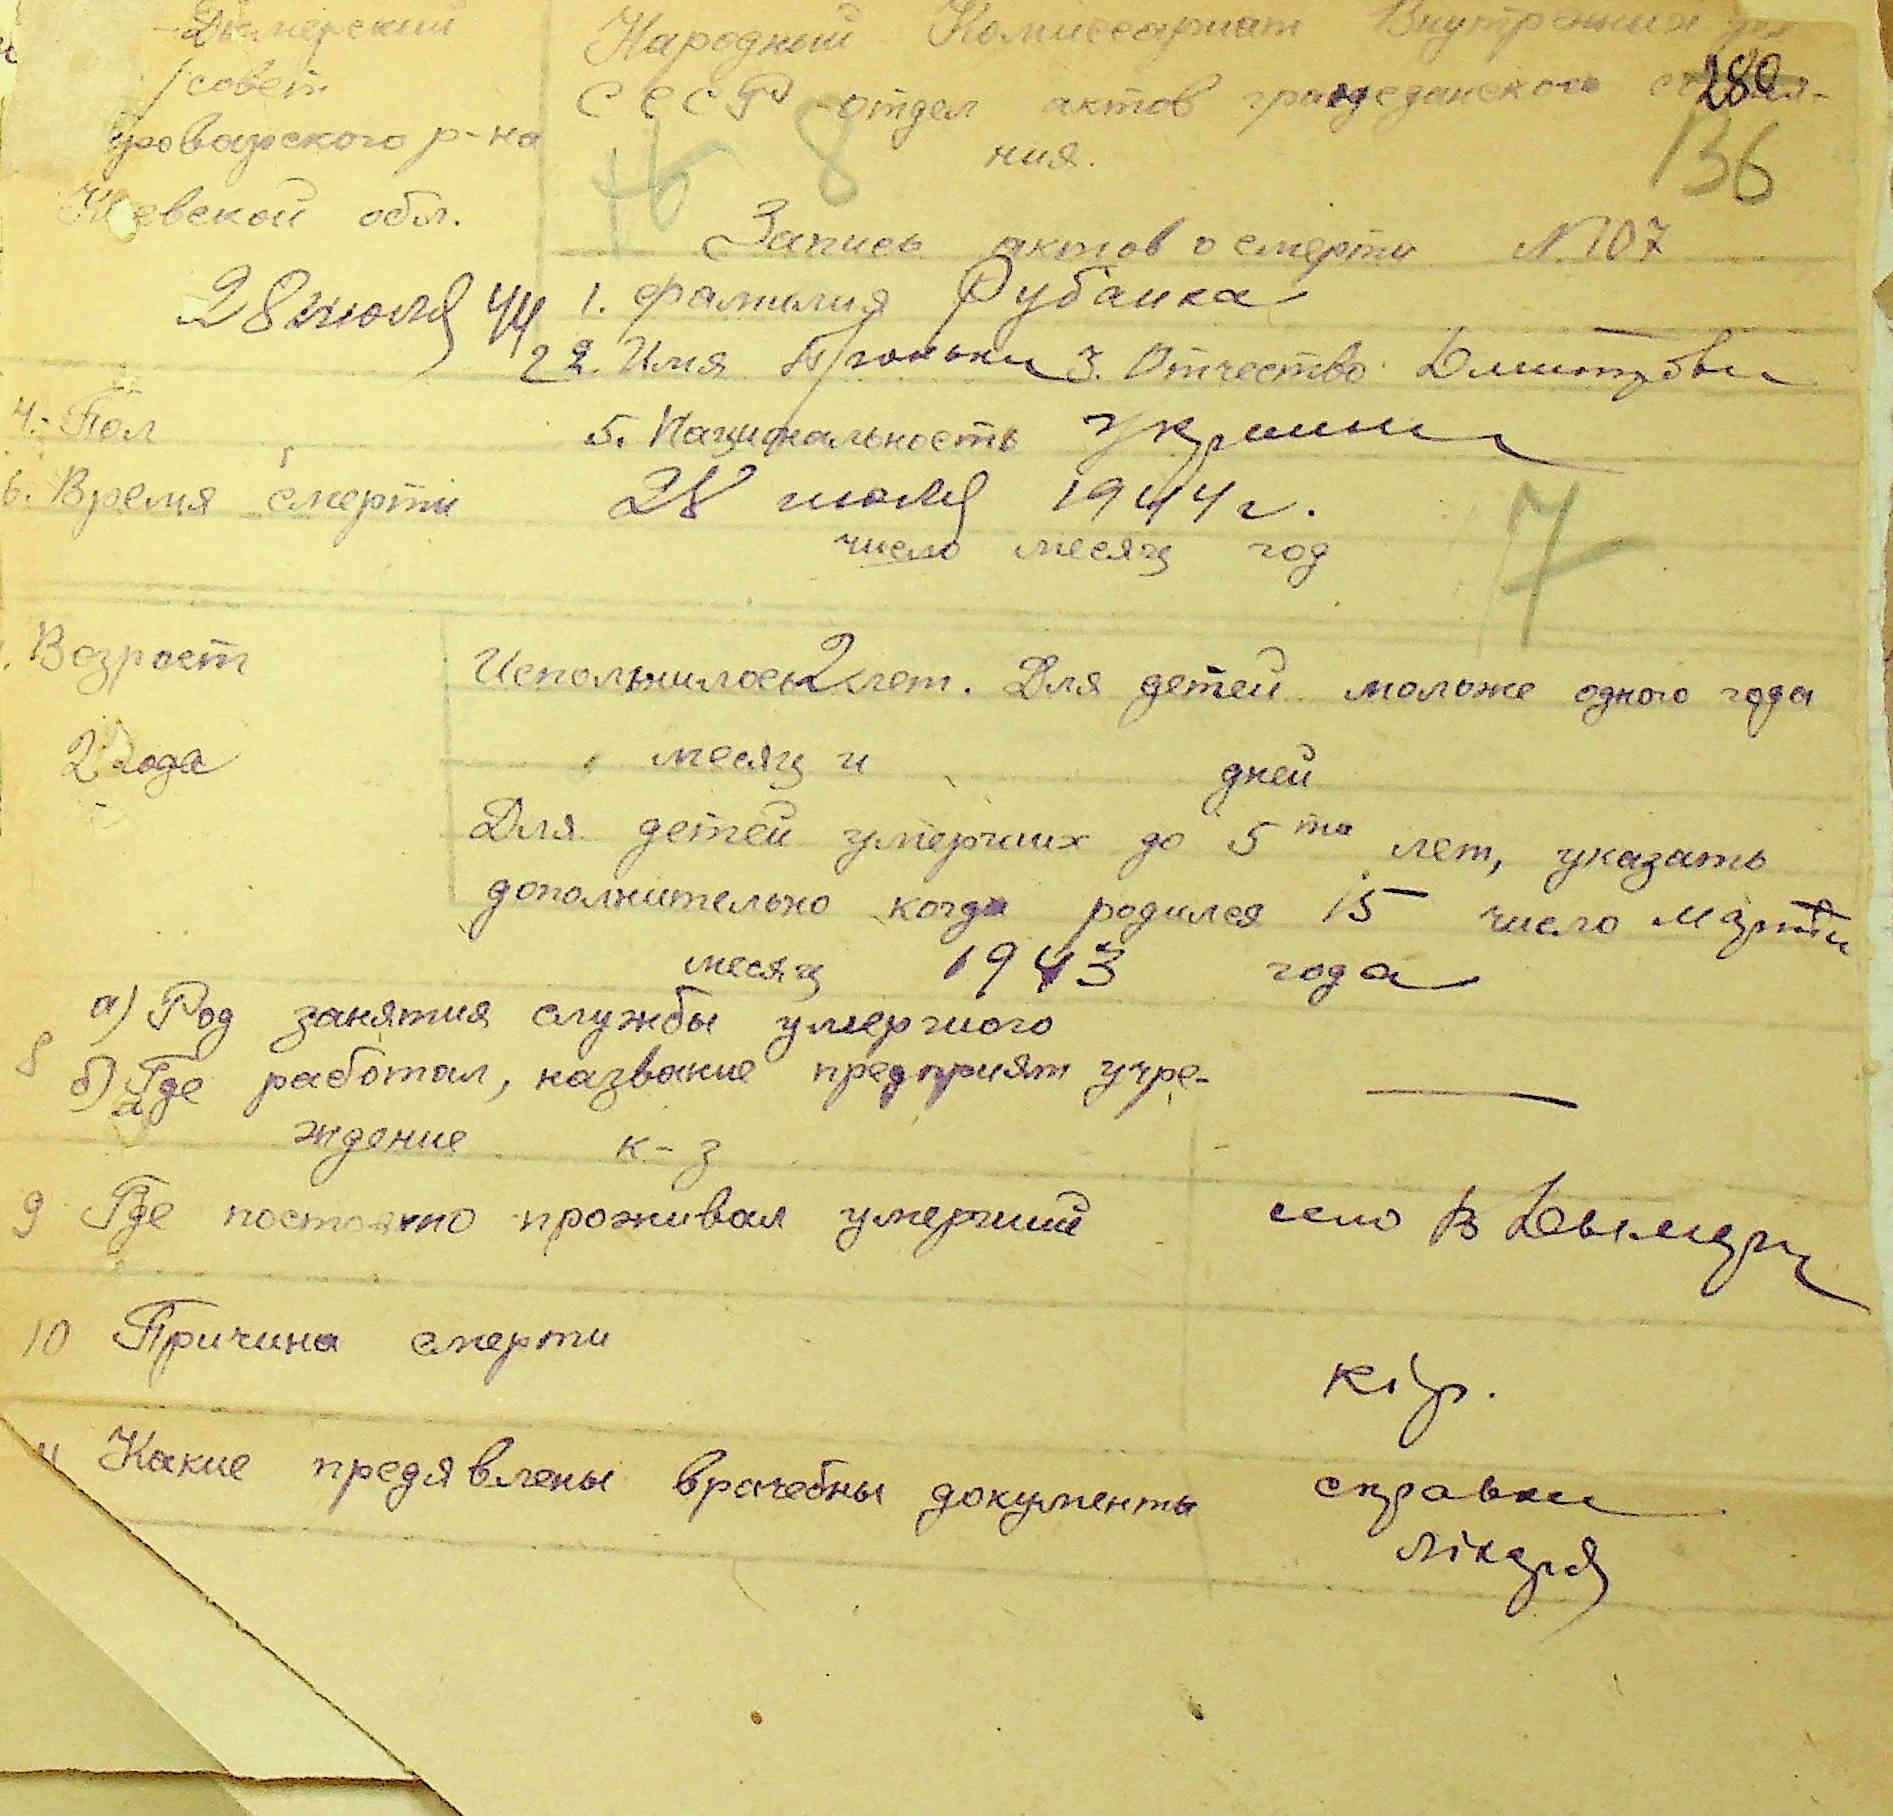 Дымерский
Народный Комиссариат Внутренних дел
/совет
СССР отдел актов гражеданского
280
Броварского р-на
ния.
8
136
Киевской обл.
Запись актов о смерти N 107
28 июля 44
1. Фамилия Рубанка
2. Имя 3. Отчество
4. Пол
5. Национальность украинка
6. Время смерти 28 июля 1944 г.
число месяц год
7
Возраст
Исполнилось 2 лет. Для детей моложе одного года
2 года
месяц и дней
Для детей умерших до 5та лет, указать
дополнительно когда родился 15 число марта
месяц 1943 года
8 а) Род занятия службы умершого
б) Где работал, название предприят учре-
ждение к-з
9 Где постояно проживал умерший село В Дымерка
10 Причина смерти кір.
11 Какие предявлены врачебны документы справка
лікаря